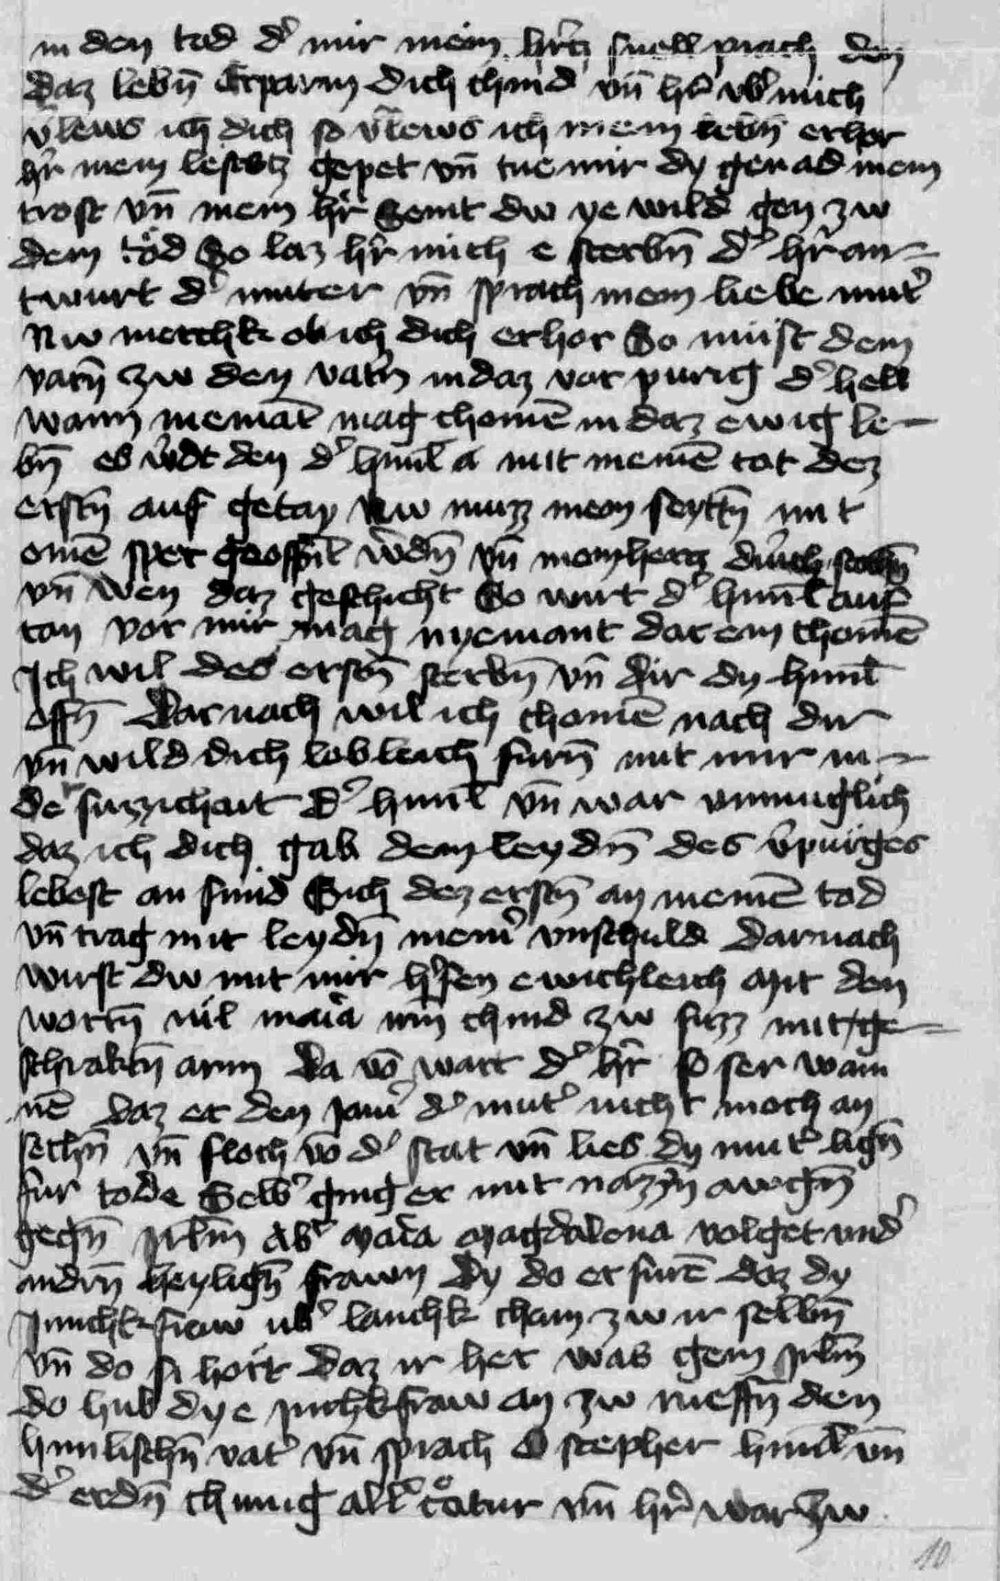 in den tod dˀ mir mein hˀrcz snell prach den
daz lebn̄ Erparm dich chind vn̄ hˀr vbˀ mich
vˀlews ich dich so vˀlews ich mein lebn̄ erhor
hˀr mein lestctz gepet vn̄ tue mir dy genad mein
trost vn̄ mein hˀr Seint dw ye wild gen zw
dem tod So laz hˀr mich e sterbn̄ dˀ hˀr an-
twurt dˀ muter vn̄ sprach mein liebe mutˀ
Nw merchk ob ich dich erhor So must dem
vatn̄ zw den vatn̄ in daz vor purig dˀ hell
wann niemāt mag chomē in daz ewig le-
bn̄ es wˀdt den dˀ himl̄ a mit meinē tot dez
erstn̄ auf getan Nw muzz mein seyttn̄ mit
einē sper geoffn̄t wˀdn̄ vn̄ mein hercz durch stochn̄
vn̄ wen daz geschicht So wirt dˀ himl̄ auf
tan vor mir mag nyemant dar ein chomē
Ich wil des erstn̄ sterbn̄ vn̄ dir dy himl̄
offn̄ Darnach wil ich chomē nach dir
vn̄ wild dich lobleich furn̄ mit mir in-
de suzzichait dˀ himl̄ vn̄ war vnmuglich
daz ich dich gab dem leydn̄ des vˀpurges
lebest an sund Sich dez erstn̄ an meinē tod
vn̄ trag mit leydn̄ meinˀ vnschuld Darnach
wirst dw mit mir hˀsen ewichleich Mit den
wortn̄ vil maˀia irm chind zw fuzz mit ge-
schrakn̄ arm Da vō wart dˀ hˀr so ser wain
nē daz er den jamˀ dˀ mutˀ nicht moch an
sechn̄ vn̄ floch vō dˀ stat vn̄ lies dy mutˀ lign̄
fur tode Selbˀ ging er mit nazzn̄ awgn̄
gegn̄ jrlm̄ Abˀ Maˀia Magdalena volget vnd
andrn̄ heylign̄ frawn Dy do er furē daz dy
Junchkfraw ubˀ lanchk cham zw ir selbn̄
vn̄ do si hort daz ir her was gein jrlm̄
do hub dye junchkfraw an zw rueffn̄ den
himlischn̄ vatˀ vn̄ sprach O schepher himl̄ vn̄
dˀ erdn̄ chunig allˀ cˀatur vn̄ hˀr warzw
10